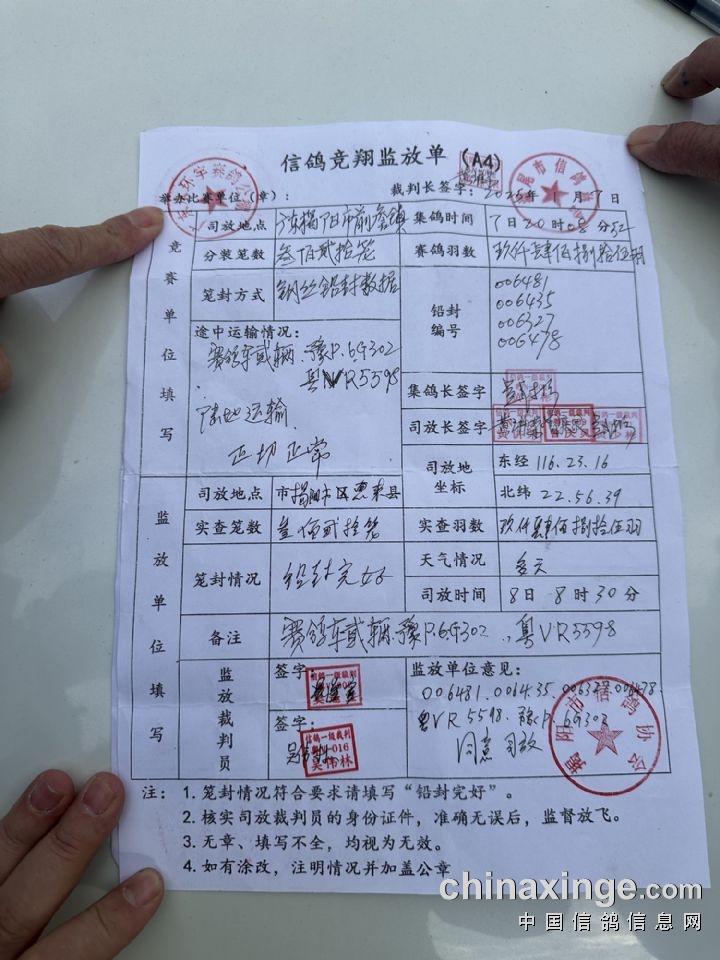 信鸽竞翔监放单 (A4)
举办比赛单位(章): 裁判长签字: 2025年1月7日
竞赛单位填写
司放地点 广东揭阳市前詹镇 集鸽时间 7日20时08分52
分装笼数 叁佰贰拾笼 赛鸽羽数 玖仟肆佰捌拾伍羽
笼封方式 钢丝铅封数据 铅封编号 006481
006435
006327
006478
途中运输情况:
赛鸽车贰辆.豫P.6G302
粤VR5598
陆地运输
正切正常
集鸽长签字
司放长签字
司放地坐标 东经 116.23.16
北纬 22.56.39
监放单位填写
司放地点 市揭阳市区惠来县
实查笼数 叁佰贰拾笼 实查羽数 玖仟肆佰捌拾伍羽
笼封情况 铅封完好 天气情况 多云
司放时间 8日8时30分
备注 赛鸽车贰辆.豫P.6G302,粤VR5598
监放裁判员 签字:
签字: 吴伟林
信鸽一级裁判
016
吴伟林
监放单位意见:
006481.006435.006327.006478.
粤VR5598.豫P.6G302
同意司放
揭阳市信鸽协会
注: 1. 笼封情况符合要求请填写“铅封完好”。
2. 核实司放裁判员的身份证件,准确无误后,监督放飞。
3. 无章、填写不全,均视为无效。
4. 如有涂改,注明情况并加盖公章
chinaxinge.com
中国信鸽信息网